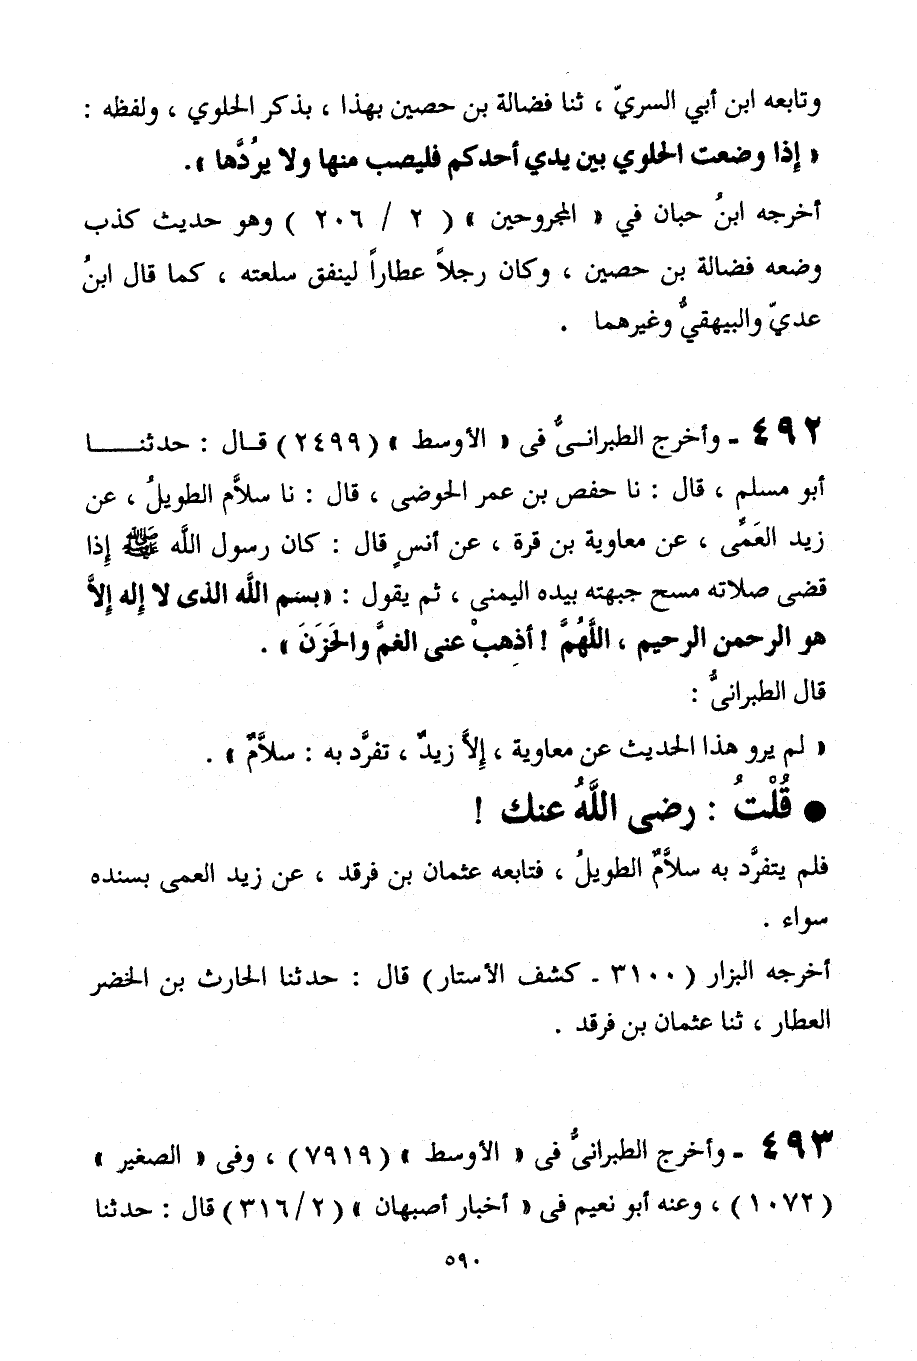 وتابعه ابن أبي السريّ ، ثنا فضالة بن حصين بهذا ، بذكر الحلوي ، ولفظه :
« إذا وضعت الحلوي بين يدي أحدكم فليصب منها ولا يرُدَّها ».
أخرجه ابنُ حبان في « المجروحين » ( ٢ / ٢٠٦ ) وهو حديث كذب
وضعه فضالة بن حصين ، وكان رجلاً عطاراً لينفق سلعته ، كما قال ابنُ
عديّ والبيهقيُّ وغيرهما .
٤٩٢ - وأخرج الطبرانـىُّ فى « الأوسط » (٢٤٩٩) قـال : حدثنـــا
أبو مسلم ، قال : نا حفص بن عمر الحوضى ، قال : نا سلاَّم الطويلُ ، عن
زيد العَمِّى ، عن معاوية بن قرة ، عن أنسٍ قال : كان رسول الله ﷺ إذا
قضى صلاته مسح جبهته بيده اليمنى ، ثم يقول : «بسم اللَّه الذى لا إله إلاَّ
هو الرحمن الرحيم ، اللَّهُمَّ ! أذهبْ عنى الغمَّ والحَزَنَ » .
قال الطبرانىُّ :
« لم يرو هذا الحديث عن معاوية ، إلاَّ زيدٌ ، تفرَّد به : سلاَّمٌ » .
● قُلْتُ : رضى اللَّهُ عنك !
فلم يتفرَّد به سلاَّمٌ الطويلُ ، فتابعه عثمان بن فرقد ، عن زيد العمى بسنده
سواء .
أخرجه البزار ( ٣١٠٠ - كشف الأستار) قال : حدثنا الحارث بن الخضر
العطار ، ثنا عثمان بن فرقد .
٤٩٣ - وأخرج الطبرانىُّ فى « الأوسط » (٧٩١٩) ، وفى « الصغير »
(١٠٧٢) ، وعنه أبو نعيم فى « أخبار أصبهان » (٣١٦/٢) قال : حدثنا
٥٩٠